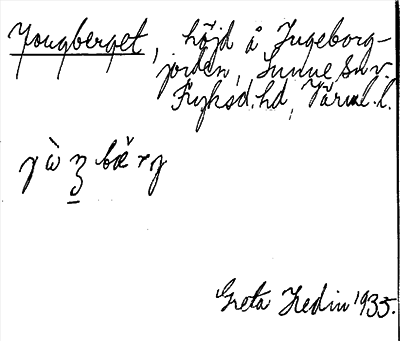 Yougberget, höjd å Ingeborg-
jorden, Sunne sn v.
Fryksd. hd, Värml. l.
bæ̌rg
Greta Hedin 1935.